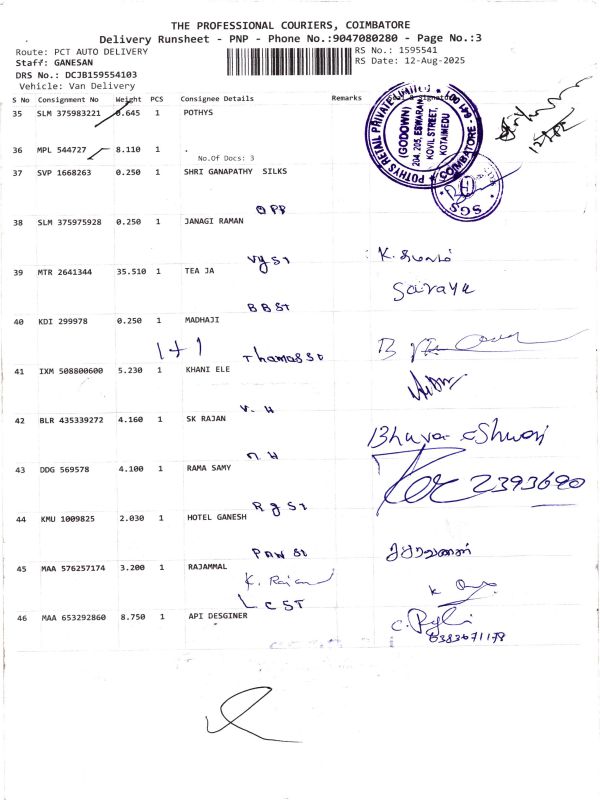 THE PROFESSIONAL COURIERS, COIMBATORE
Delivery Runsheet - PNP - Phone No.:9047080280 - Page No.:3
Route: PCT AUTO DELIVERY
RS No.: 1595541
Staff: GANESAN
RS Date: 12-Aug-2025
DRS No.: DCJB159554103
Vehicle: Van Delivery
S No Consignment No Weight PCS Consignee Details Remarks
35 SLM 375983221 0.645 1 POTHYS
POTHYS RETAIL PRIVATE LIMITED
(GODOWN)
204, 205, ESWARAN
KOVIL STREET,
KOTAIMEDU
COIMBATORE - 641 001
36 MPL 544727 8.110 1 .
No.Of Docs: 3
37 SVP 1668263 0.250 1 SHRI GANAPATHY SILKS
SGS
OPP
38 SLM 375975928 0.250 1 JANAGI RAMAN
Vy St
39 MTR 2641344 35.510 1 TEA JA
Saraya
B B St
40 KDI 299978 0.250 1 MADHAJI
1+1 Thomas St
41 IXM 508800600 5.230 1 KHANI ELE
V. H
42 BLR 435339272 4.160 1 SK RAJAN
M H
43 DDG 569578 4.100 1 RAMA SAMY
2393690
R J St
44 KMU 1009825 2.030 1 HOTEL GANESH
PAW St
45 MAA 576257174 3.200 1 RAJAMMAL
L C ST
46 MAA 653292860 8.750 1 API DESGINER